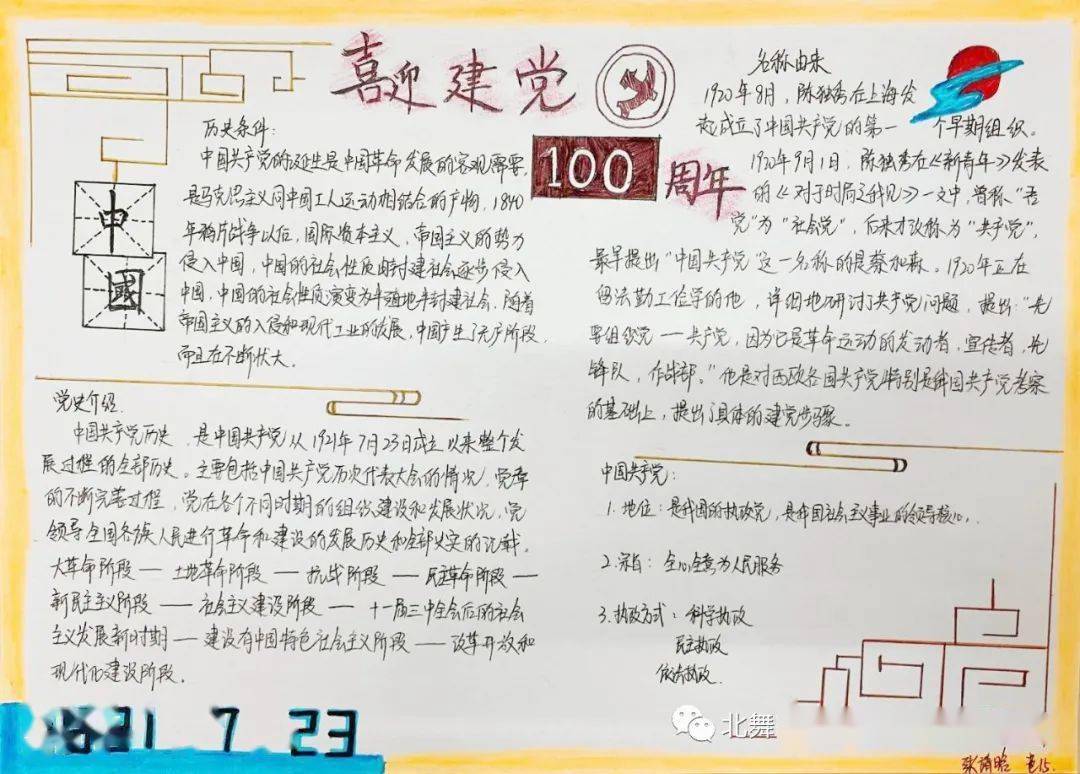 喜迎建党
100
周年
中
國
历史条件:
中国共产党的诞生是中国革命发展的客观需要,
是马克思主义同中国工人运动相结合的产物, 1840
年鸦片战争以后, 国际资本主义, 帝国主义的势力
侵入中国, 中国的社会性质由封建社会逐步侵入
中国, 中国的社会性质演变为半殖地半封建社会, 随着
帝国主义的入侵和现代工业的发展, 中国产生了无产阶段,
而且在不断状大。
名称由来
1920年8月, 陈独秀在上海发
起成立了中国共产党的第一 个早期组织。
1920年9月1日, 陈独秀在《新青年》发表
的《对于时局之我见》一文中, 曾称"吾
党"为"社会党", 后来才改称为"共产党",
最早提出"中国共产党"这一名称的是蔡和森。1920年正在
留法勤工俭学的他, 详细地研讨了共产党问题, 提出:"先
要组织党——共产党, 因为它是革命运动的发动者, 宣传者, 先
锋队, 作战部。"他是对西欧各国共产党特别是俄国共产党考察
的基础上, 提出了具体的建党步骤。
党史介绍
中国共产党历史, 是中国共产党从1921年7月23日成立以来整个发
展过程的全部历史。主要包括中国共产党历次代表大会的情况, 党章
的不断完善过程, 党在各个不同时期的组织建设和发展状况, 党
领导全国各族人民进行革命和建设的发展历史和全部史实的记载。
大革命阶段——土地革命阶段——抗战阶段——民主革命阶段——
新民主主义阶段——社会主义建设阶段——十一届三中全会后的社会
主义发展新时期——建设有中国特色社会主义阶段——改革开放和
现代化建设阶段。
中国共产党:
1. 地位: 是我国的执政党, 是我国社会主义事业的领导核心,
2. 宗旨: 全心全意为人民服务
3. 执政方式: 科学执政
民主执政
依法执政.
7.23
北舞